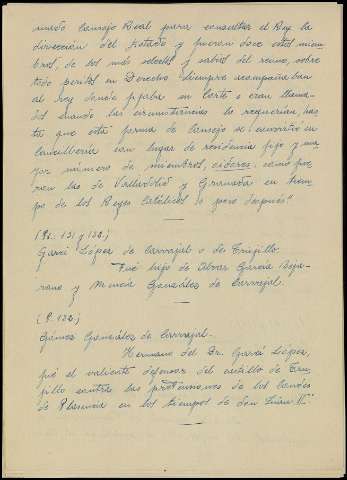 mado Consejo Real para consultar el Rey la
dirección del Estado y fueron doce estos miem-
bros, de los más selectos y sabios del reino, sobre
todo peritos en Derecho. Siempre acompañaban
al rey donde fijaba su Corte o eran llama-
dos cuando las circunstancias lo requerían, has-
ta que esta forma de Consejo se convirtió en
Cancillería con lugar de residencia fijo y ma-
yor número de miembros, oidores, como fue-
ron las de Valladolid y Granada en tiem-
po de los Reyes Católicos o poco después"
(Ps. 131 y 132.)
García López de Carvajal o de Trujillo.
Fué hijo de Alvar García Beja-
rano y Mencía González de Carvajal.
(P. 132)
Gómez González de Carvajal.-
Hermano del Dr. García López,
fué el valiente defensor del castillo de Tru-
jillo contra las pretensiones de los Condes
de Plasencia en los tiempos de don Juan II.